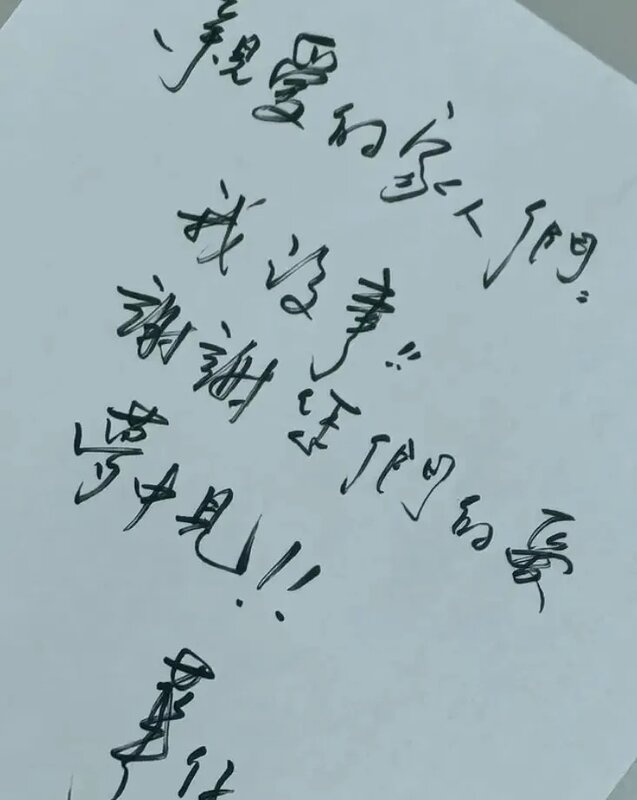 親愛的家人們:
我沒事!!
謝謝您們的愛
夢中見!!
華